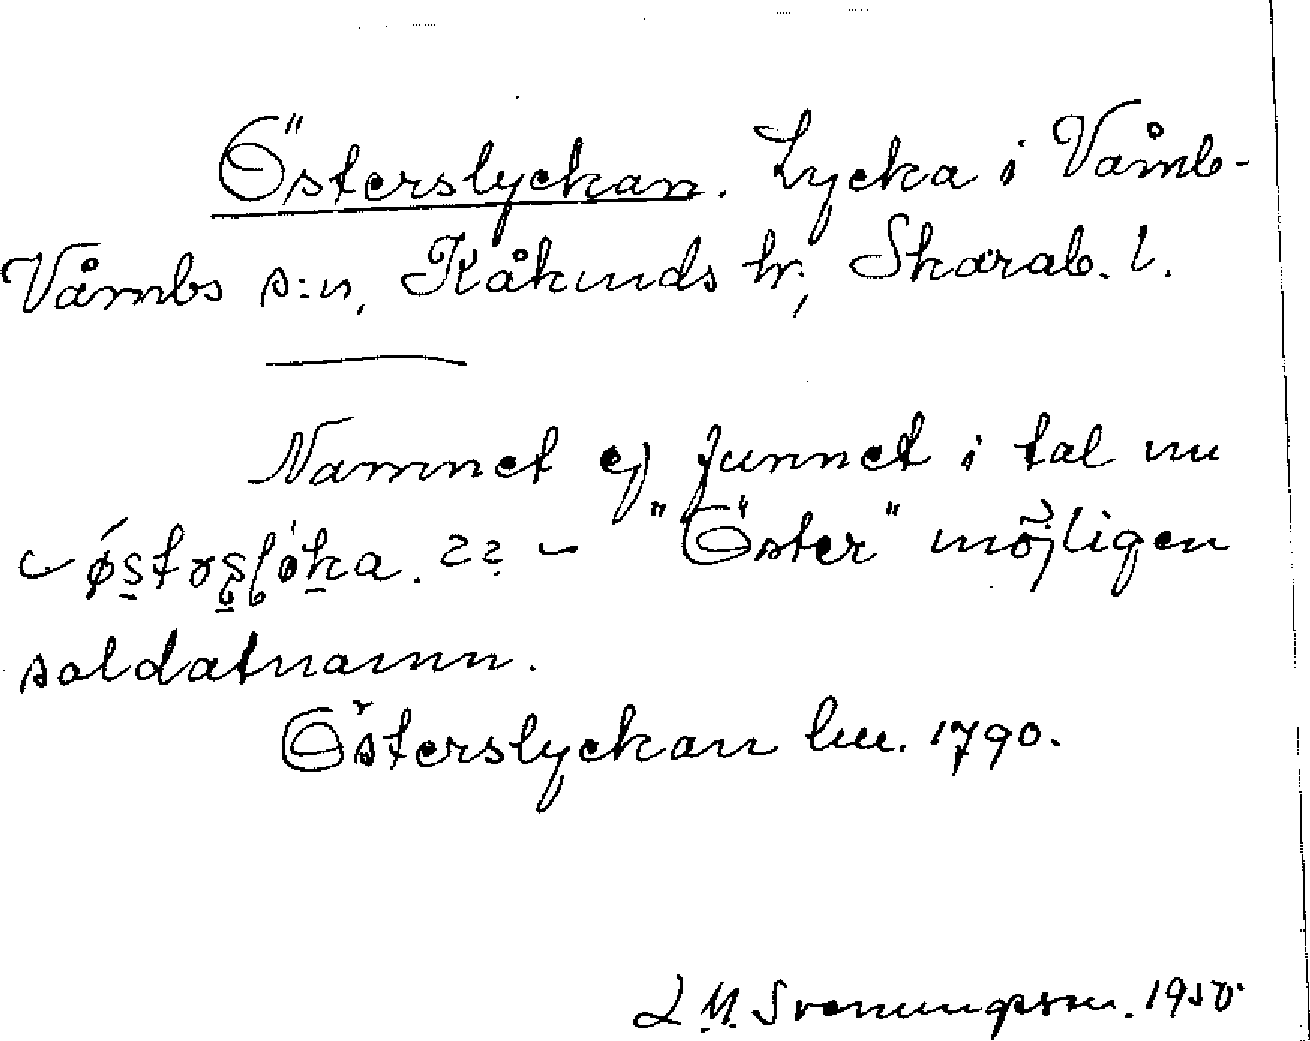 Österslyckan. Lycka i Våmb-
Våmbs s:n, Kåkinds hr, Skarab. l.
Namnet ej funnet i tal nu
"Öster" möjligen
soldatnamn.
Österslyckan 1790.
L. M. Svenungsson. 1950